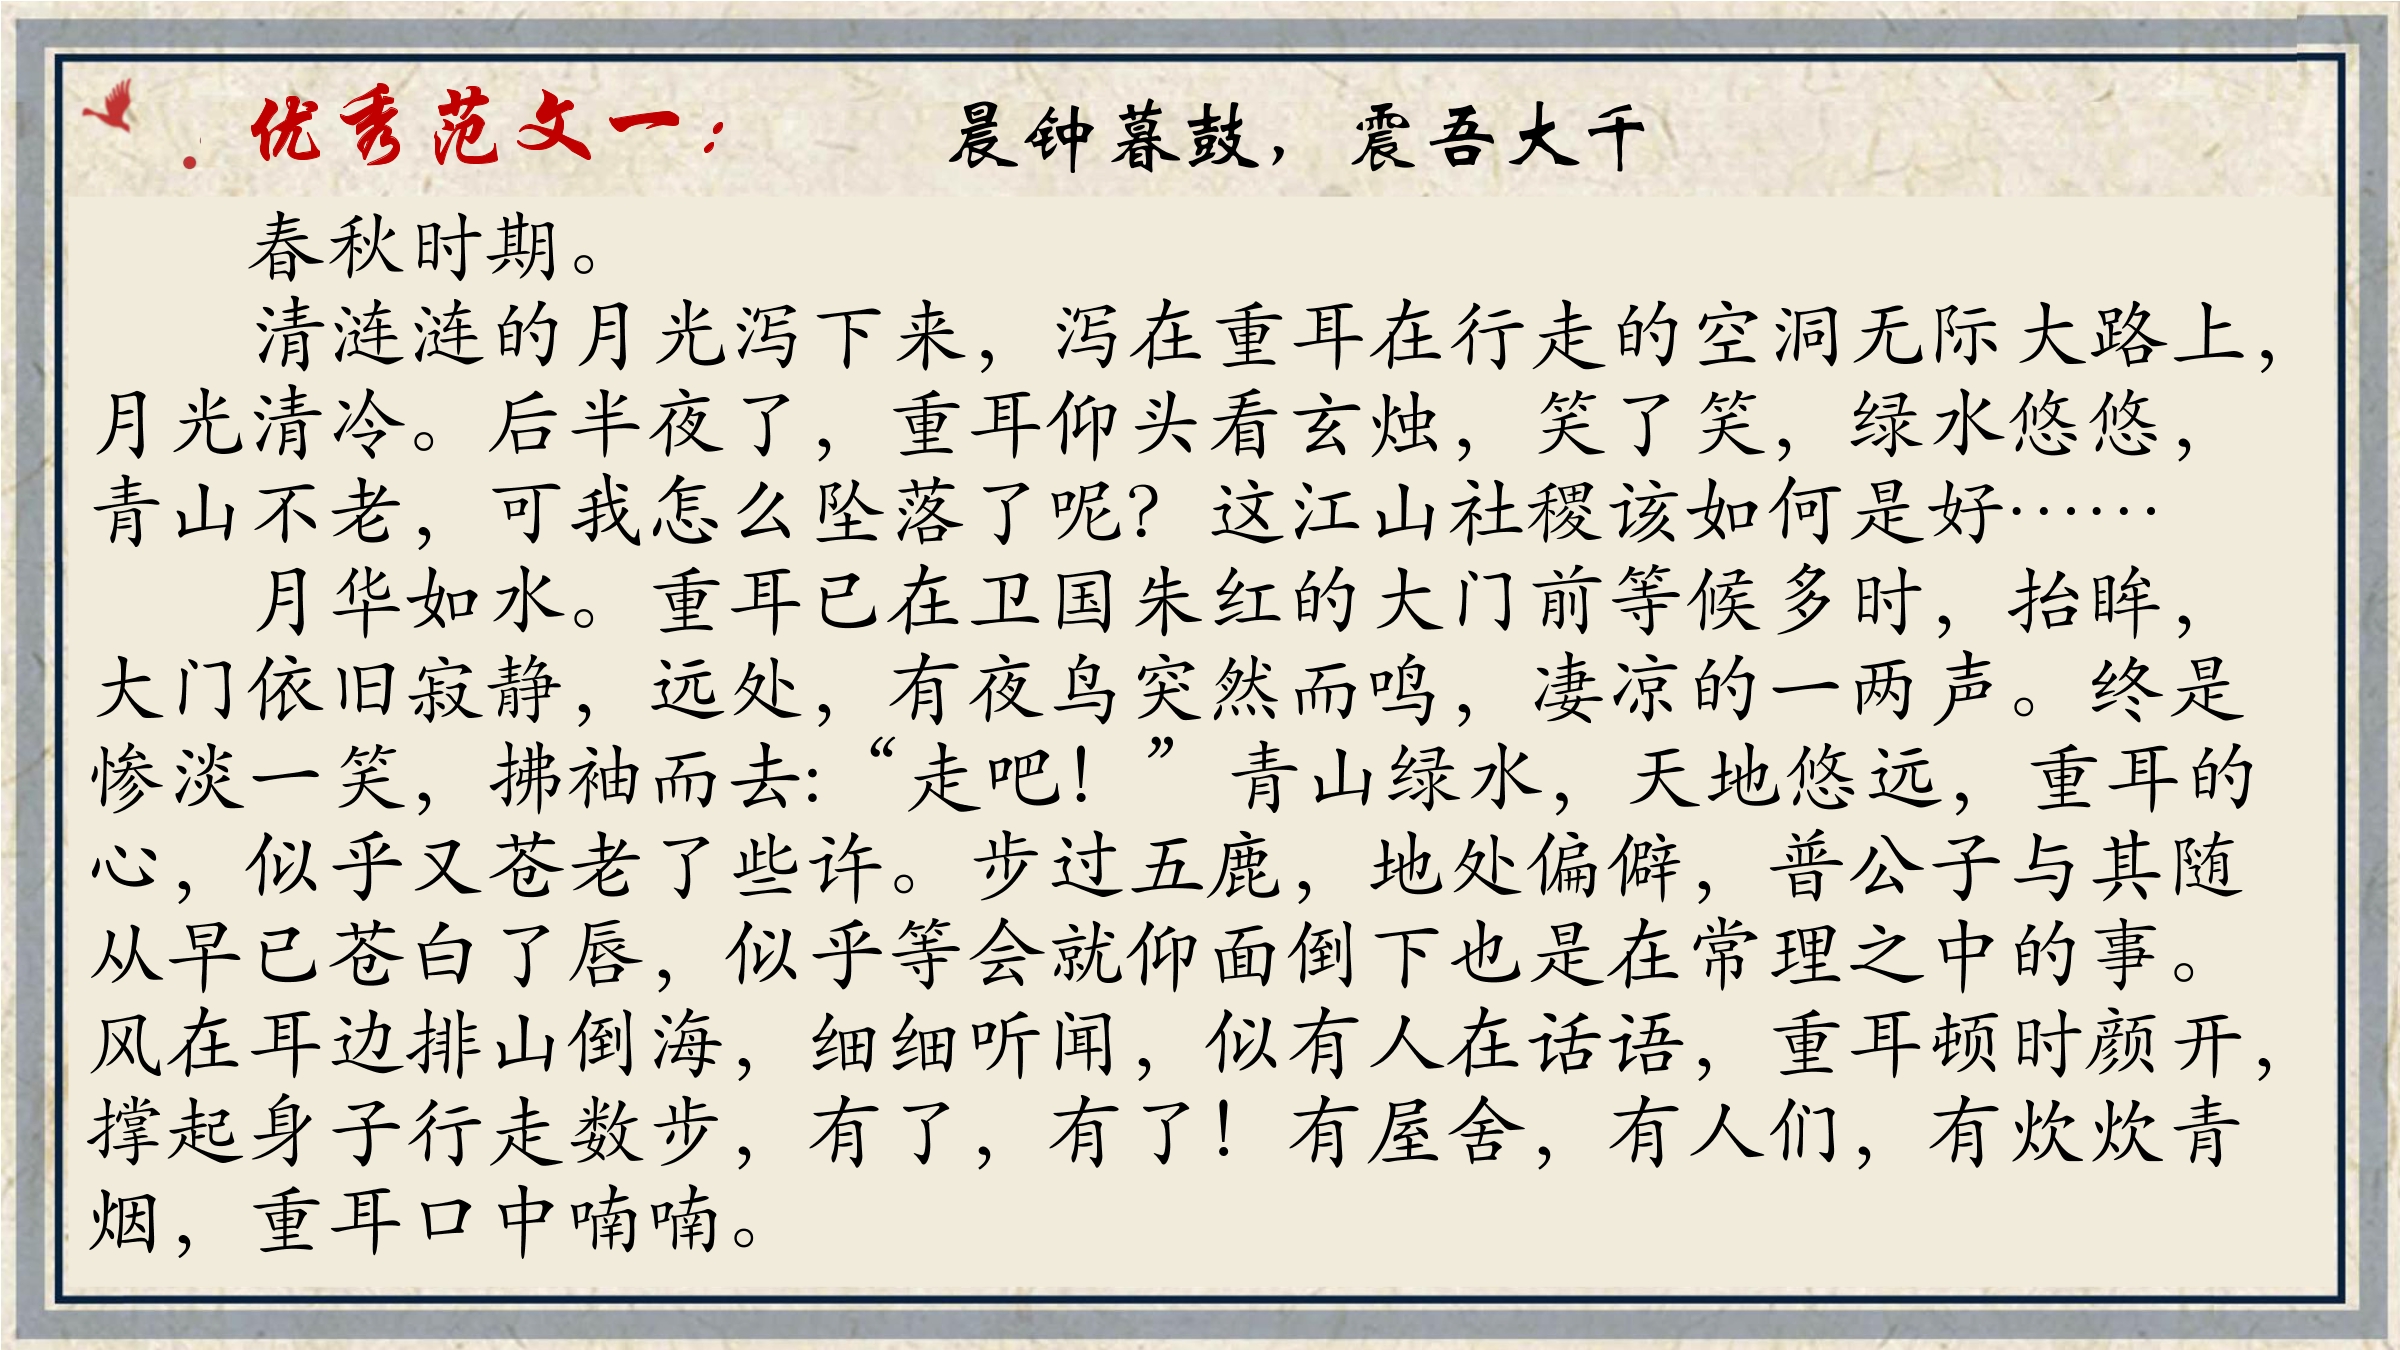 优秀范文一： 晨钟暮鼓，震吾大千
春秋时期。
清涟涟的月光泻下来，泻在重耳在行走的空洞无际大路上，
月光清冷。后半夜了，重耳仰头看玄烛，笑了笑，绿水悠悠，
青山不老，可我怎么坠落了呢？这江山社稷该如何是好……
月华如水。重耳已在卫国朱红的大门前等候多时，抬眸，
大门依旧寂静，远处，有夜鸟突然而鸣，凄凉的一两声。终是
惨淡一笑，拂袖而去:“走吧！”青山绿水，天地悠远，重耳的
心，似乎又苍老了些许。步过五鹿，地处偏僻，普公子与其随
从早已苍白了唇，似乎等会就仰面倒下也是在常理之中的事。
风在耳边排山倒海，细细听闻，似有人在话语，重耳顿时颜开，
撑起身子行走数步，有了，有了！有屋舍，有人们，有炊炊青
烟，重耳口中喃喃。